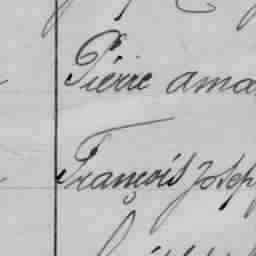 Pierre ama
François Josep